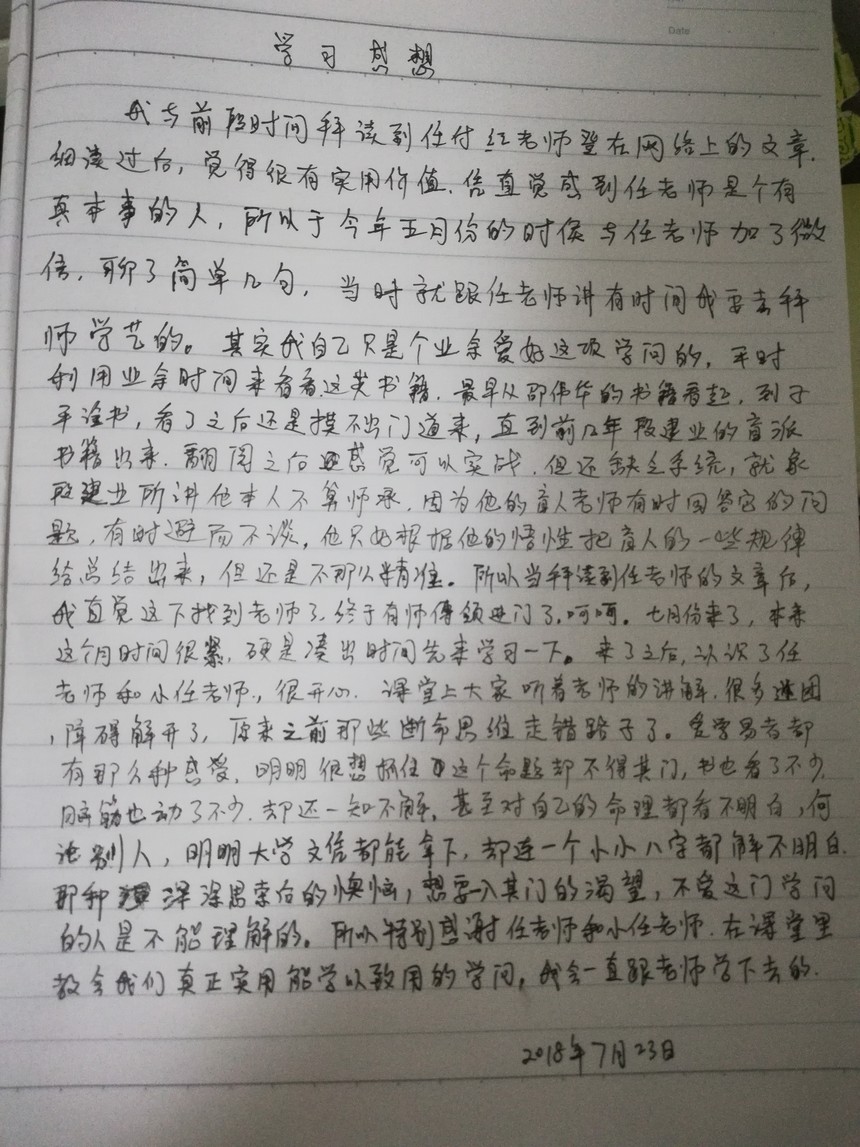 Date
学习感想
我与前段时间拜读到任付红老师登在网络上的文章.
细读过后，觉得很有实用价值.凭直觉感到任老师是个有
真本事的人，所以于今年五月份的时候与任老师加了微
信，聊了简单几句，当时就跟任老师讲有时间我要去拜
师学艺的。其实我自己只是个业余爱好这项学问的，平时
利用业余时间来看看这类书籍.最早从邵伟华的书籍看起，到子
平诠书，看了之后还是摸不出门道来，直到前几年段建业的盲派
书籍出来.翻阅之后感觉可以实战.但还缺乏系统，就象
段建业所讲他本人不算师承，因为他的盲人老师有时回答他的问
题，有时避而不谈，他只好根据他的悟性把盲人的一些规律
给总结出来，但还是不那么精准。所以当拜读到任老师的文章后，
我直觉这下找到老师了.终于有师傅领进门了.呵呵。七月份来了，本来
这个月时间很紧.硬是凑出时间先来学习一下。来了之后，认识了任
老师和小任老师.，很开心.课堂上大家听着老师的讲解.很多迷团
，障碍解开了，原来之前那些断命思维走错路子了。爱学易者都
有那么种感受，明明很想抓住这个命题却不得其门，书也看了不少.
脑筋也动了不少.却还一知不解，甚至对自己的命理都看不明白，何
论别人，明明大学文信都能拿下，却连一个小小八字都解不明白.
那种深深思索后的懊恼，想要入其门的渴望，不爱这门学问
的人是不能理解的。所以特别感谢任老师和小任老师.在课堂里
教会我们真正实用能学以致用的学问，我会一直跟老师学下去的.
2018年7月23日